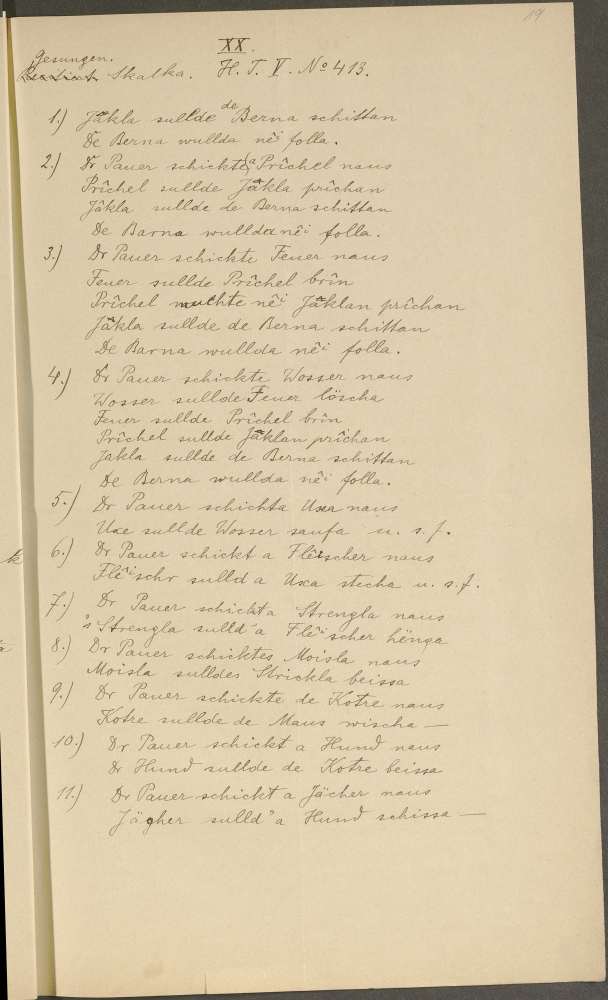 19
XX.
gesungen.
Skalka. H. T. V. No 413.
1.) Jåkla sullde de Berna schittan
De Berna wullda nêi folla.
2.) Dr Pauer schickte a Prîchel naus
Prîchel sullde Jåkla prîchan
Jåkla sullde de Berna schittan
De Barna wullda nêi folla.
3.) Dr Pauer schickte Feuer naus
Feuer sullde Prîchel brîn
Prîchel muchte nêi Jåklan prîchan
Jåkla sullde de Berna schittan
De Barna wullda nêi folla.
4.) Dr Pauer schickte Wosser naus
Wosser sullde Feuer löscha
Feuer sullde Prîchel brîn
Prîchel sullde Jåklan prîchan
Jakla sullde de Berna schittan
De Berna wullda nêi folla.
5.) Dr Pauer schichta Uxa naus
Uxe sullde Wosser saufa u. s. f.
6.) Dr Pauer schickt a Flêischer naus
Flêischr sulld a Uxa stecha u. s. f.
7.) Dr Pauer schickta Strengla naus
's Strengla sulld'a Flêischer hënga
8.) Dr Pauer schicktes Moisla naus
Moisla sulldes Strickla beissa
9.) Dr Pauer schickte de Kotre naus
Kotre sullde de Maus wischa —
10.) Dr Pauer schickt a Hund naus
Dr Hund sullde de Kotre beissa
11.) Dr Pauer schickt a Jächer naus
Jägher sulld'a Hund schissa —